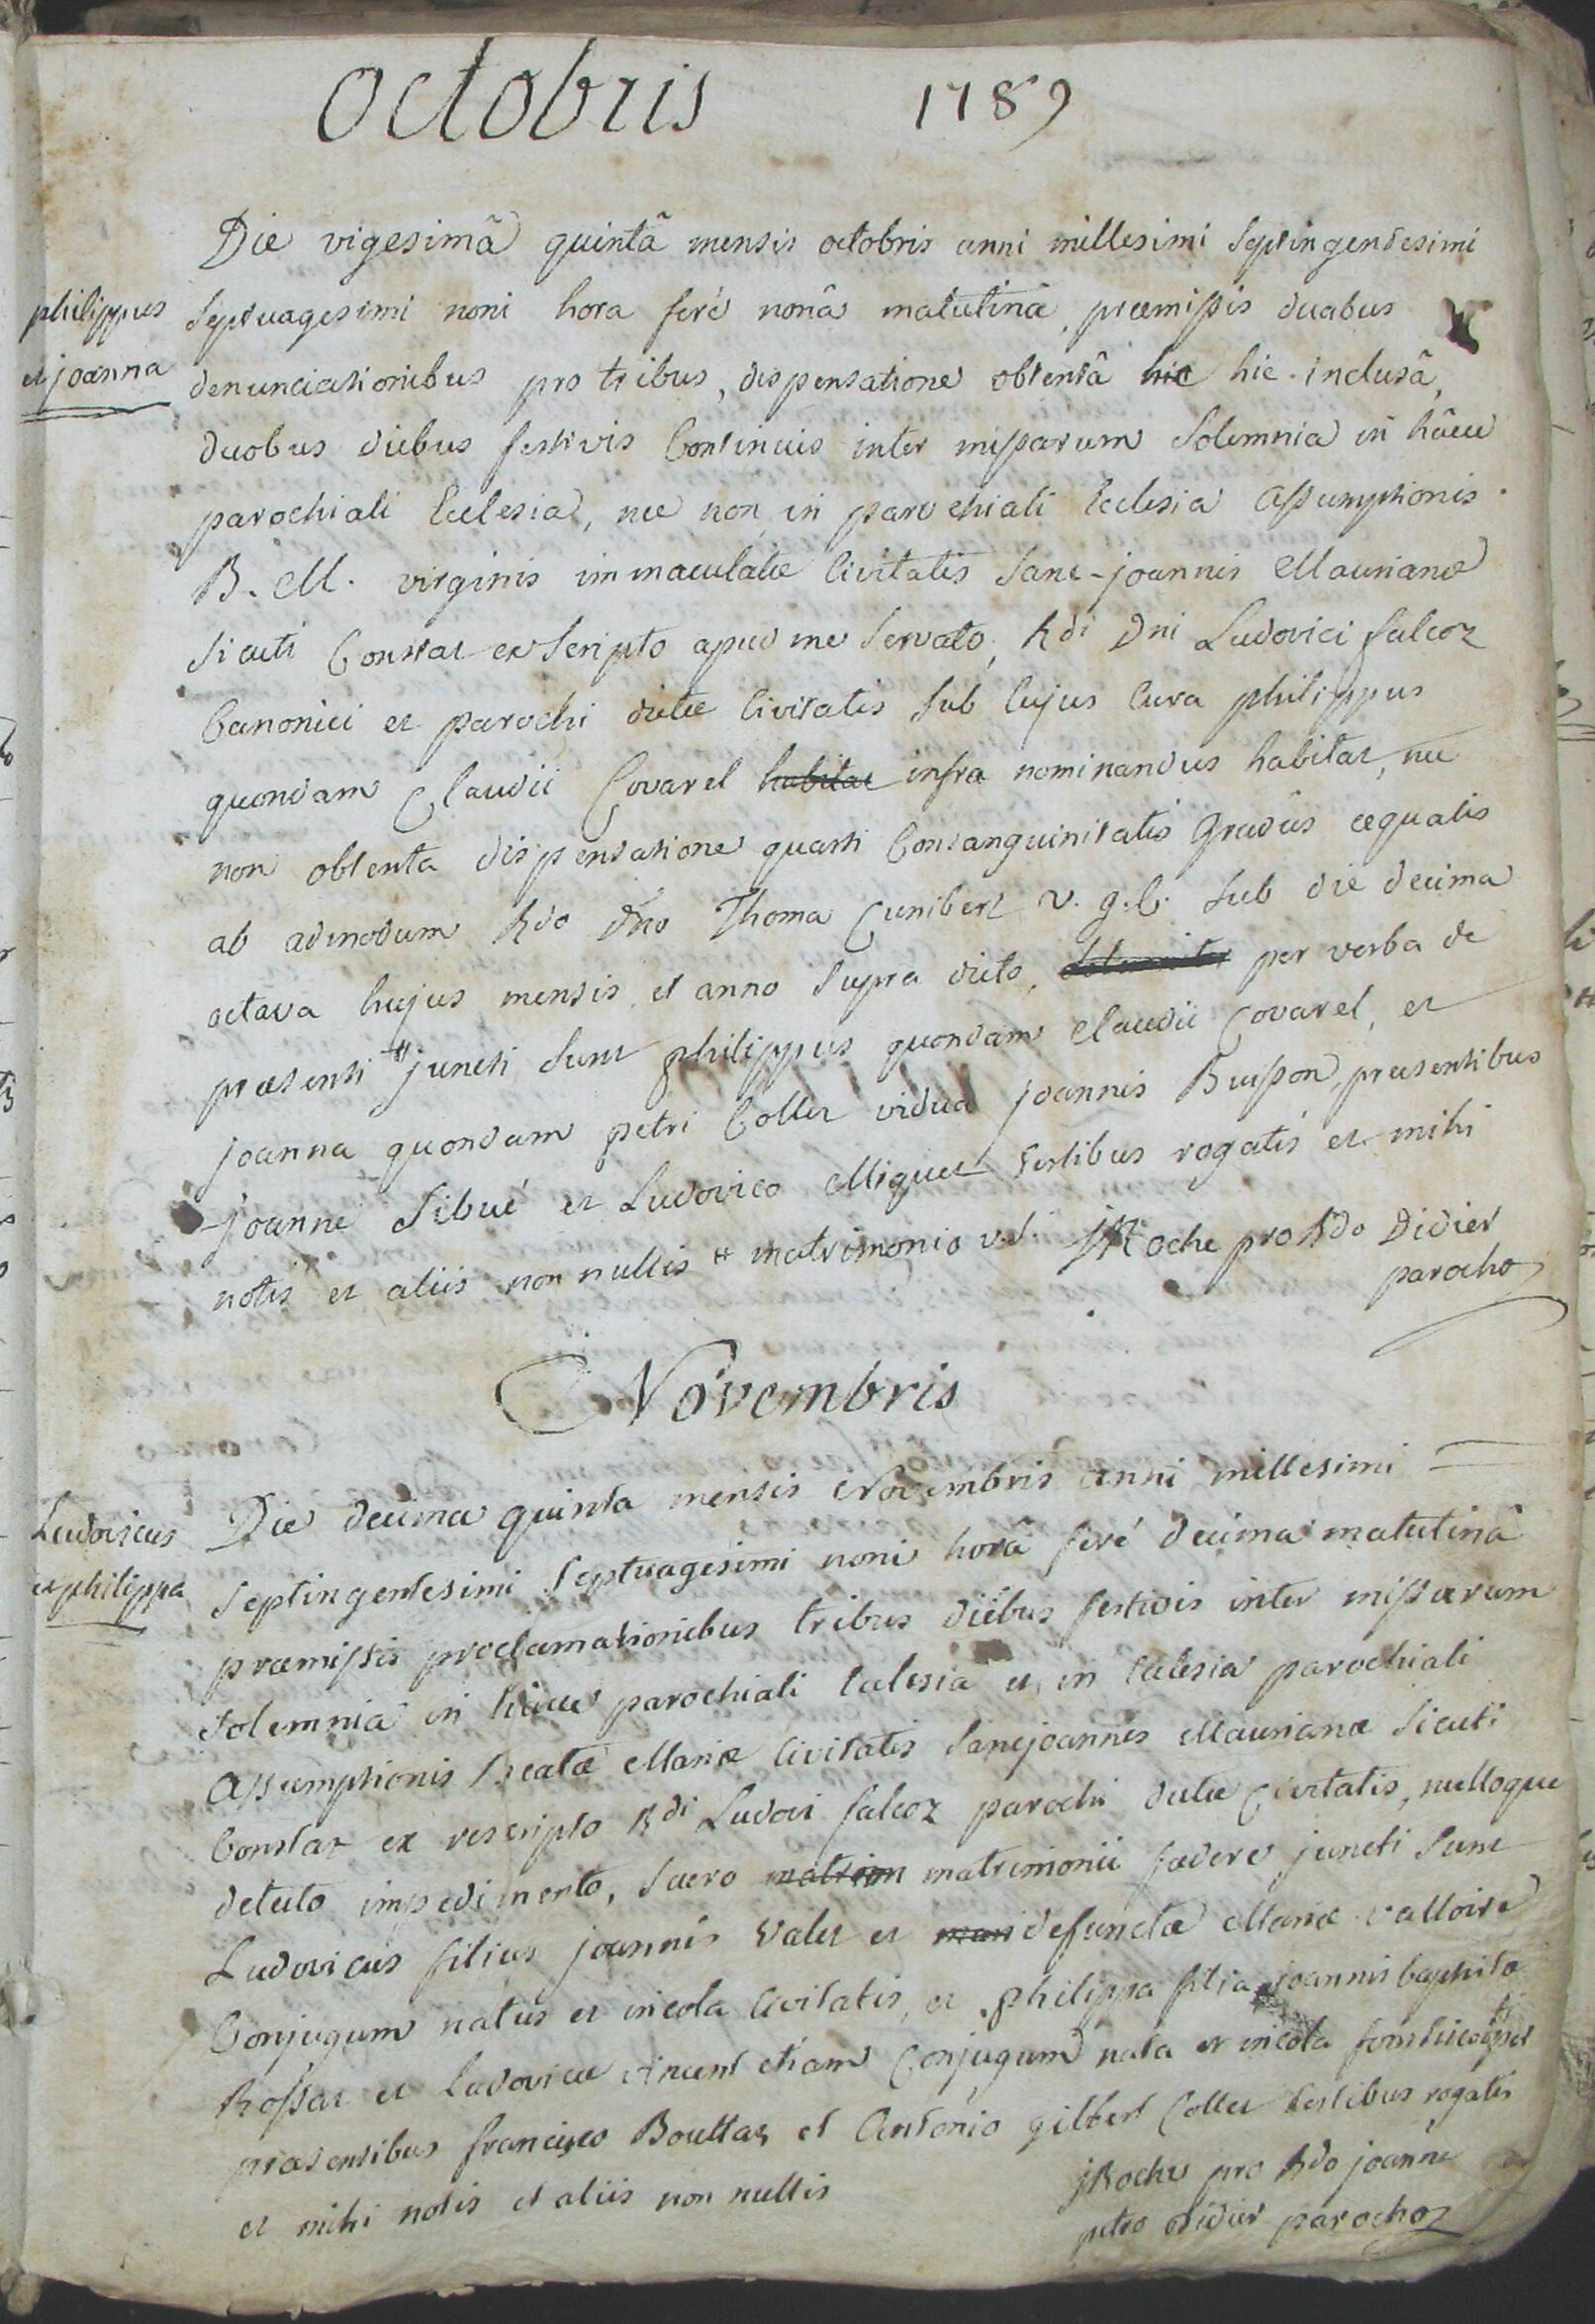 octobris 1789
Die vigesimâ quintâ mensis octobris anni millesimi septingentesimi
philippus
et joanna
septuagesimi noni hora feré nonâ matutinâ, præmissis duabus
denunciationibus pro tribus, dispensatione obtentâ hic hic inclusâ,
duobus diebus festivis continuis inter missarum solemnia in hâce
parochiali Ecclesia, nec non in parochiali Ecclesia Assumptionis
B. M. virginis immaculatæ Civitatis Sanc-joannis Maurianæ
sicuti Constat ex scripto apud me servato, Rdi Dni Ludovici falcoz
Canonici et parochi dictæ Civitatis sub cujus cura philippus
quondam Claudii Covarel habitat infra nominandus habitat, nec
non obtenta dispensatione quarti Consanguinitatis Gradûs æqualis
ab admodum Rdo Dno Thoma Cunibert v. g. C. sub die decima
octava hujus mensis et anno supra dicto, per verba de
præsenti # juncti sunt philippus quondam Claudii Covarel, et
joanna quondam petri Collet vidua joannis Buisson, præsentibus
joanne Sibué et Ludovico Miquet testibus rogatis et mihi
notis et aliis non nullis # matrimonio v.d. JRoche pro Rdo Didier
parocho
Novembris
Ludovicus
et philippa
Die decima quinta mensis Novembris anni millesimi
septingentesimi septuagesimi noni horâ feré decima matutinâ
præmissis proclamationibus tribus diebus festivis inter missarum
solemnia in hâce parochiali Ecclesia et in Ecclesia parochiali
Assumptionis Beatæ Mariæ Civitatis Sancjoannis Maurianæ sicuti
Constat ex rescripto Rdi Ludovi falcoz parochi dictæ Civitatis, nulloque
detecto impedimento, sacro matrim matrimonii fœdere juncti sunt
Ludovicus filius joannis Valet et mari defunctæ Mariæ valloire
Conjugum natus et incola Civitatis, et philippa filia joannis baptista
Rossat et Ludovicæ vincent etiam Conjugum nata et incola
præsentibus francisco Bouttaz et Antonio gilbert Collet testibus rogatis
et mihi notis et aliis non nullis
JRoche pro Rdo joanne
petro didier parocho